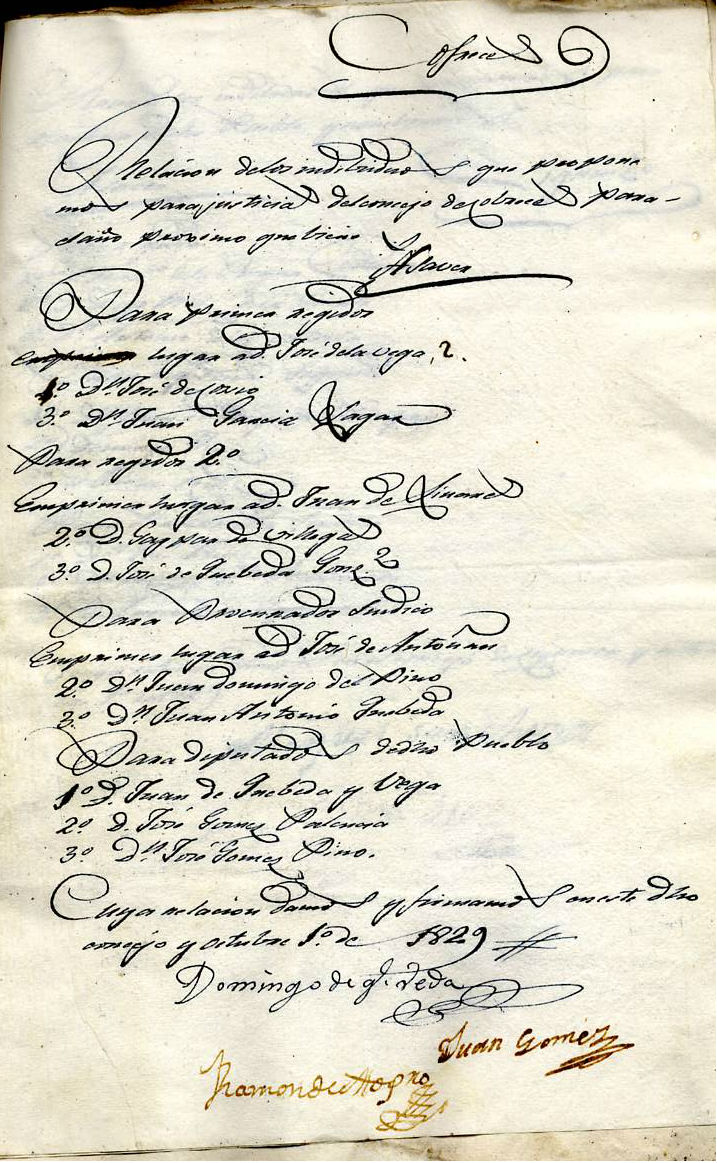 Cobreces
Relacion delos indibiduos que propone
mos para justicia del concejo de Cobreces para
el año proximo que biene
Asaver
Para primer regidor
lugar a d. José dela vega, 2.
1.º D.n José de Cosio
3.º D.n Juan Garcia
Para regidor 2.º
Emprimer lurgar a d. Juan de Linares
2.º D. Gaspar de Villegas
3.º D. José de Quebeda Gonz.
Para Procurador Sindico
Emprimer lugar a d José de Antoñan
2.º D.n Juan domingo del Pino
3.º D.n Juan Antonio Quebeda
Para diputados dedho Pueblo
1.º D. Juan de Quebeda y Vega
2.º D. José Gomez Palencia
3.º D.n José Gomez Pino.
Cuya relacion damos y firmamos eneste dho
concejo y octubre 1.º de 1829
Domingo de
Juan Gomez
Ramon de